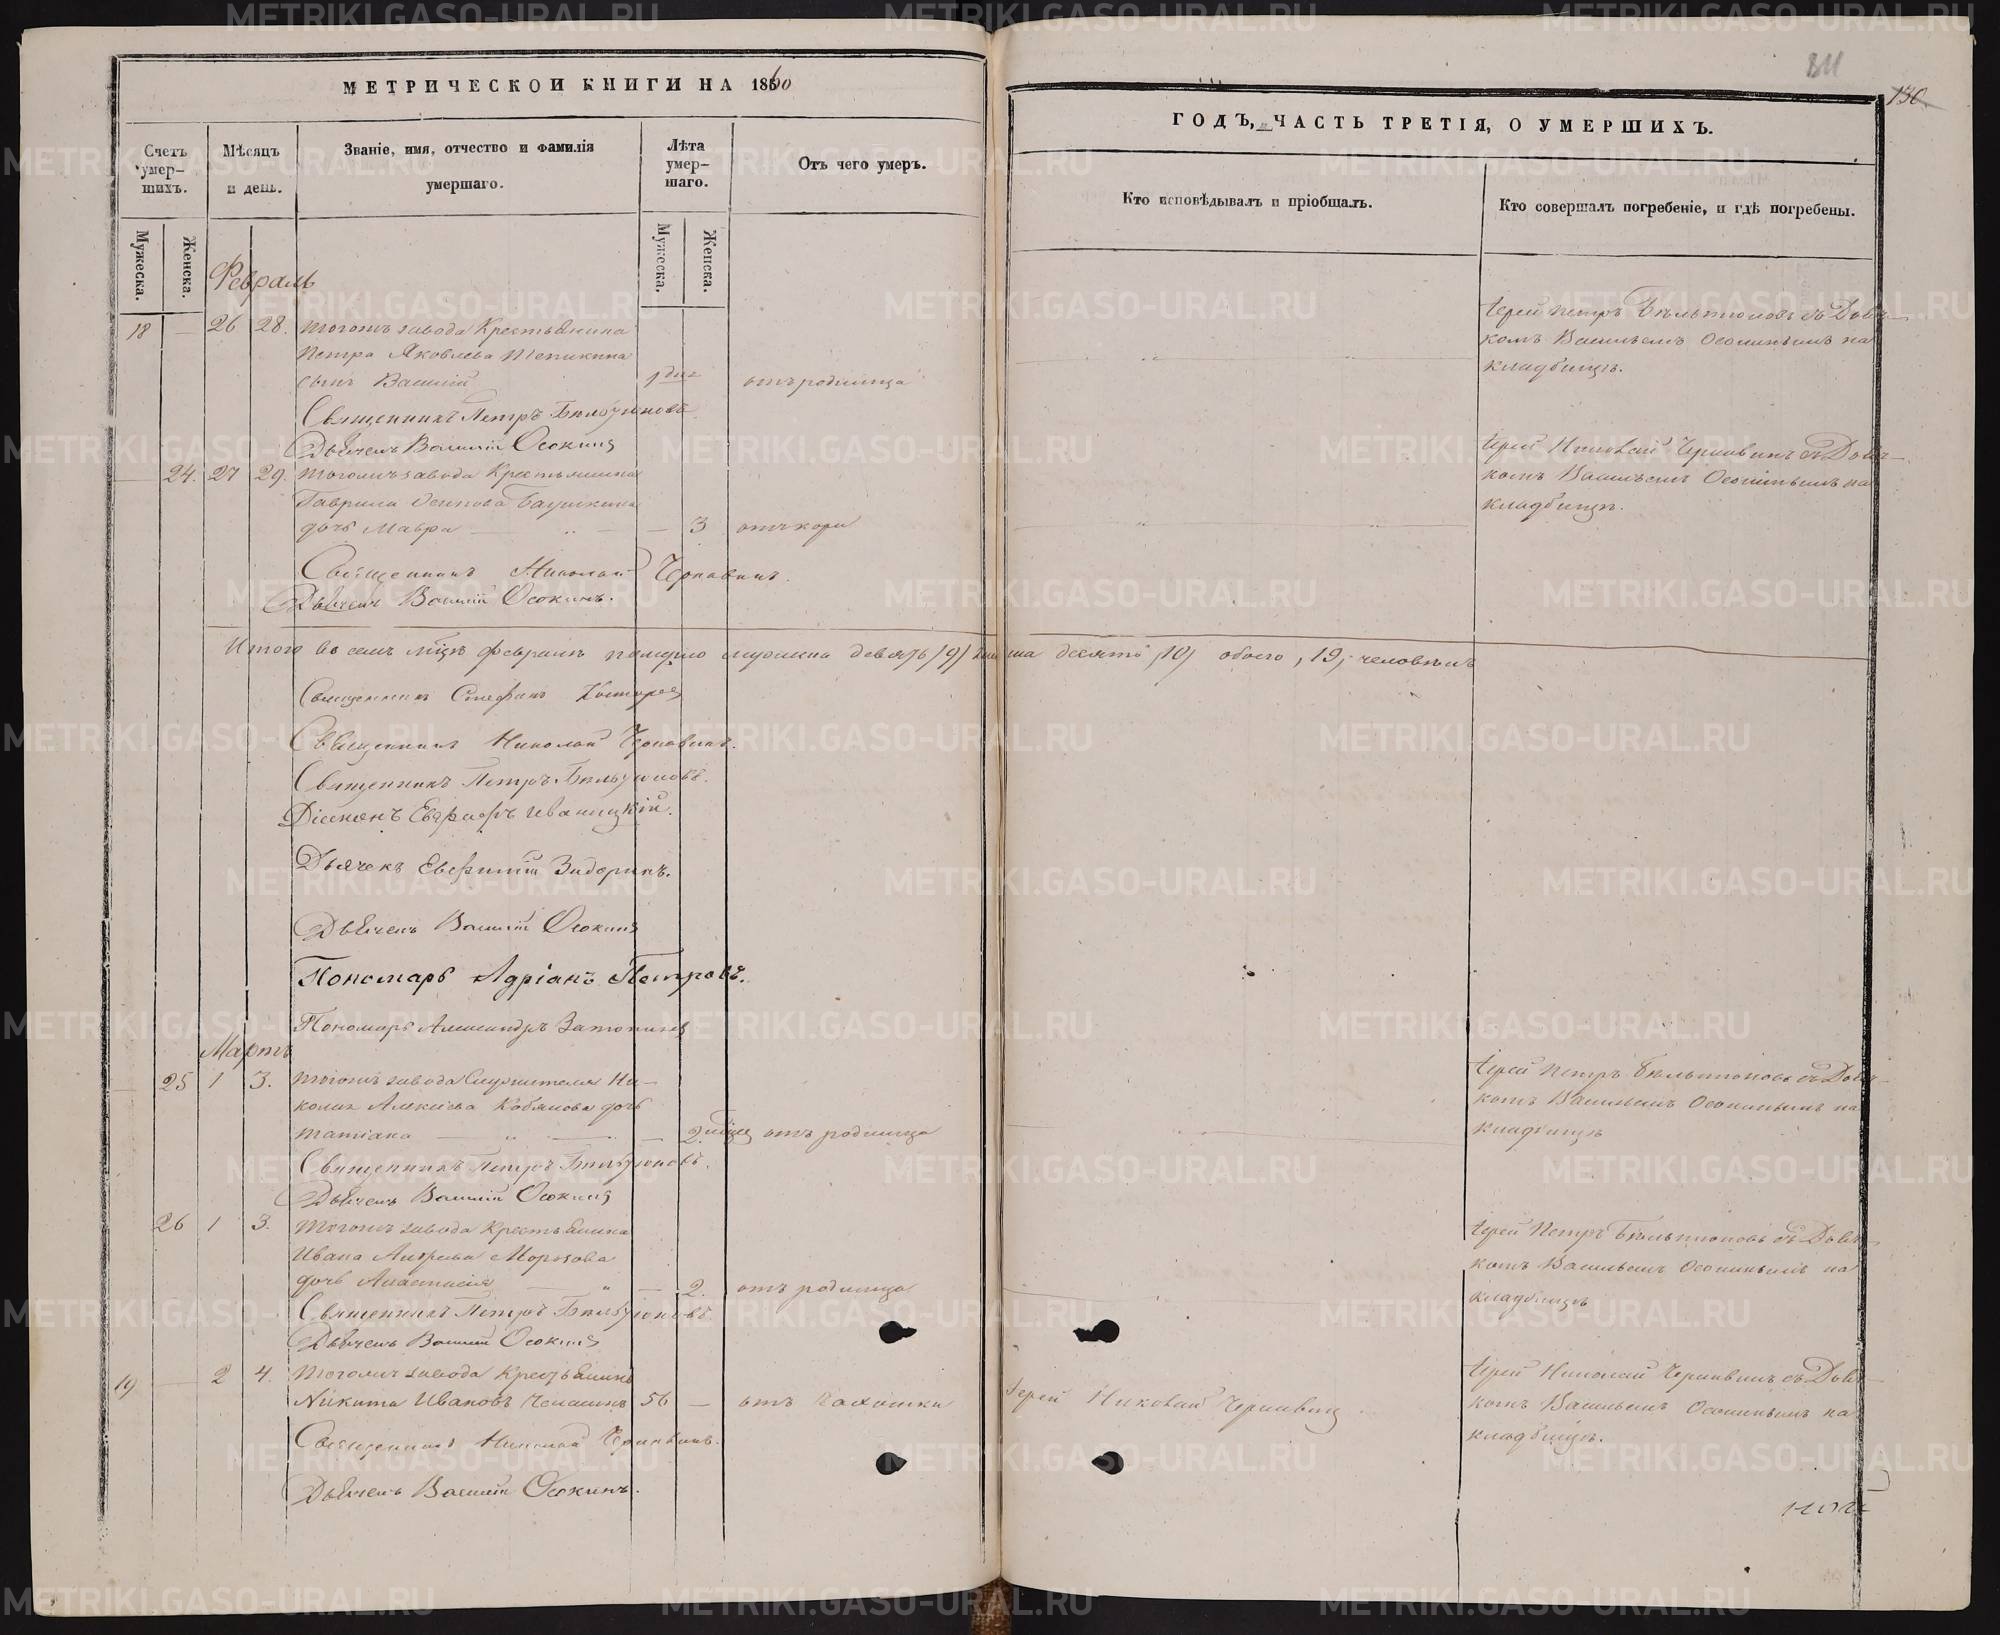 МЕТРИЧЕСКОЙ КНИГИ НА 1860
Счетъ умер-шихъ.
Мѣсяцъ и день.
Званіе, имя, отчество и фамилія умершаго.
Лѣта умер-шаго.
Отъ чего умеръ.
Мужеска.
Женска.
Мужеска.
Женска.
Февраль
18 — 26 28. Тогожъ завода Крестьянина
Петра Яковлева
сынъ Василій 1 дня отъ родимца
Священникъ Петръ Бѣльтюковъ
Дьячекъ Василій Осокинъ
24. 27 29. Тогожъ завода Крестьянина
Гаврила Осипова Баушкина
дочь Мавра — 3 отъ кори
Священникъ Николай Чернавинъ.
Дьячекъ Василій Осокинъ.
Итого въ семъ мцѣ февралѣ померло мужеска девять /9/ женска десять /10/ обоего /19/ человѣкъ
Священникъ Стефанъ
Священникъ Николай Чернавинъ.
Священникъ Петръ Бѣльтюковъ.
Діаконъ Евграфъ Иваницкій.
Дьячекъ Евфимій Зидоринъ.
Дьячекъ Василій Осокинъ
Пономарь Адріанъ Петровъ.
Пономарь Александръ
Мартъ
25 1 3. Тогожъ завода Служителя Ни-
колая Алексѣева дочь
Татіана — 2 мцев отъ родимца
Священникъ Петръ Бѣльтюковъ.
Дьячекъ Василій Осокинъ
26 1 3. Тогожъ завода Крестьянина
Ивана Андреева Морозова
дочь Анастасія — 2. отъ родимца
Священникъ Петръ Бѣльтюковъ
Дьячекъ Василій Осокинъ
19 — 2 4. Тогожъ завода Крестьянинъ
Никита Ивановъ 56 — отъ чахотки
Священникъ Николай Чернавинъ.
Дьячекъ Василій Осокинъ.
130.
ГОДЪ, ЧАСТЬ ТРЕТІЯ, О УМЕРШИХЪ.
Кто исповѣдывалъ и пріобщалъ.
Кто совершалъ погребеніе, и гдѣ погребены.
Іерей Петръ Бѣльтюковъ съ Дьяч-
комъ Васильемъ Осокинымъ на
кладбищѣ.
Іерей Николай Чернавинъ съ Дьяч-
комъ Васильемъ Осокинымъ на
кладбищѣ.
Іерей Петръ Бѣльтюковъ съ Дьяч-
комъ Васильемъ Осокинымъ на
кладбищѣ
Іерей Петръ Бѣльтюковъ съ Дьяч-
комъ Васильемъ Осокинымъ на
кладбищѣ
Іерей Николай Чернавинъ
Іерей Николай Чернавинъ съ Дьяч-
комъ Васильемъ Осокинымъ на
кладбищѣ.
METRIKI.GASO-URAL.RU